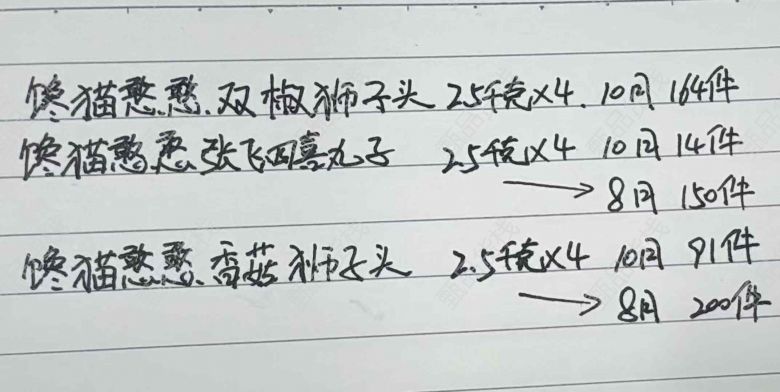 馋猫憨憨.双椒狮子头 2.5千克×4. 10月 164件
馋猫憨憨张飞四喜丸子 2.5千克×4 10月 14件
→8月 150件
馋猫憨憨.香菇狮子头 2.5千克×4 10月 91件
→8月 200件